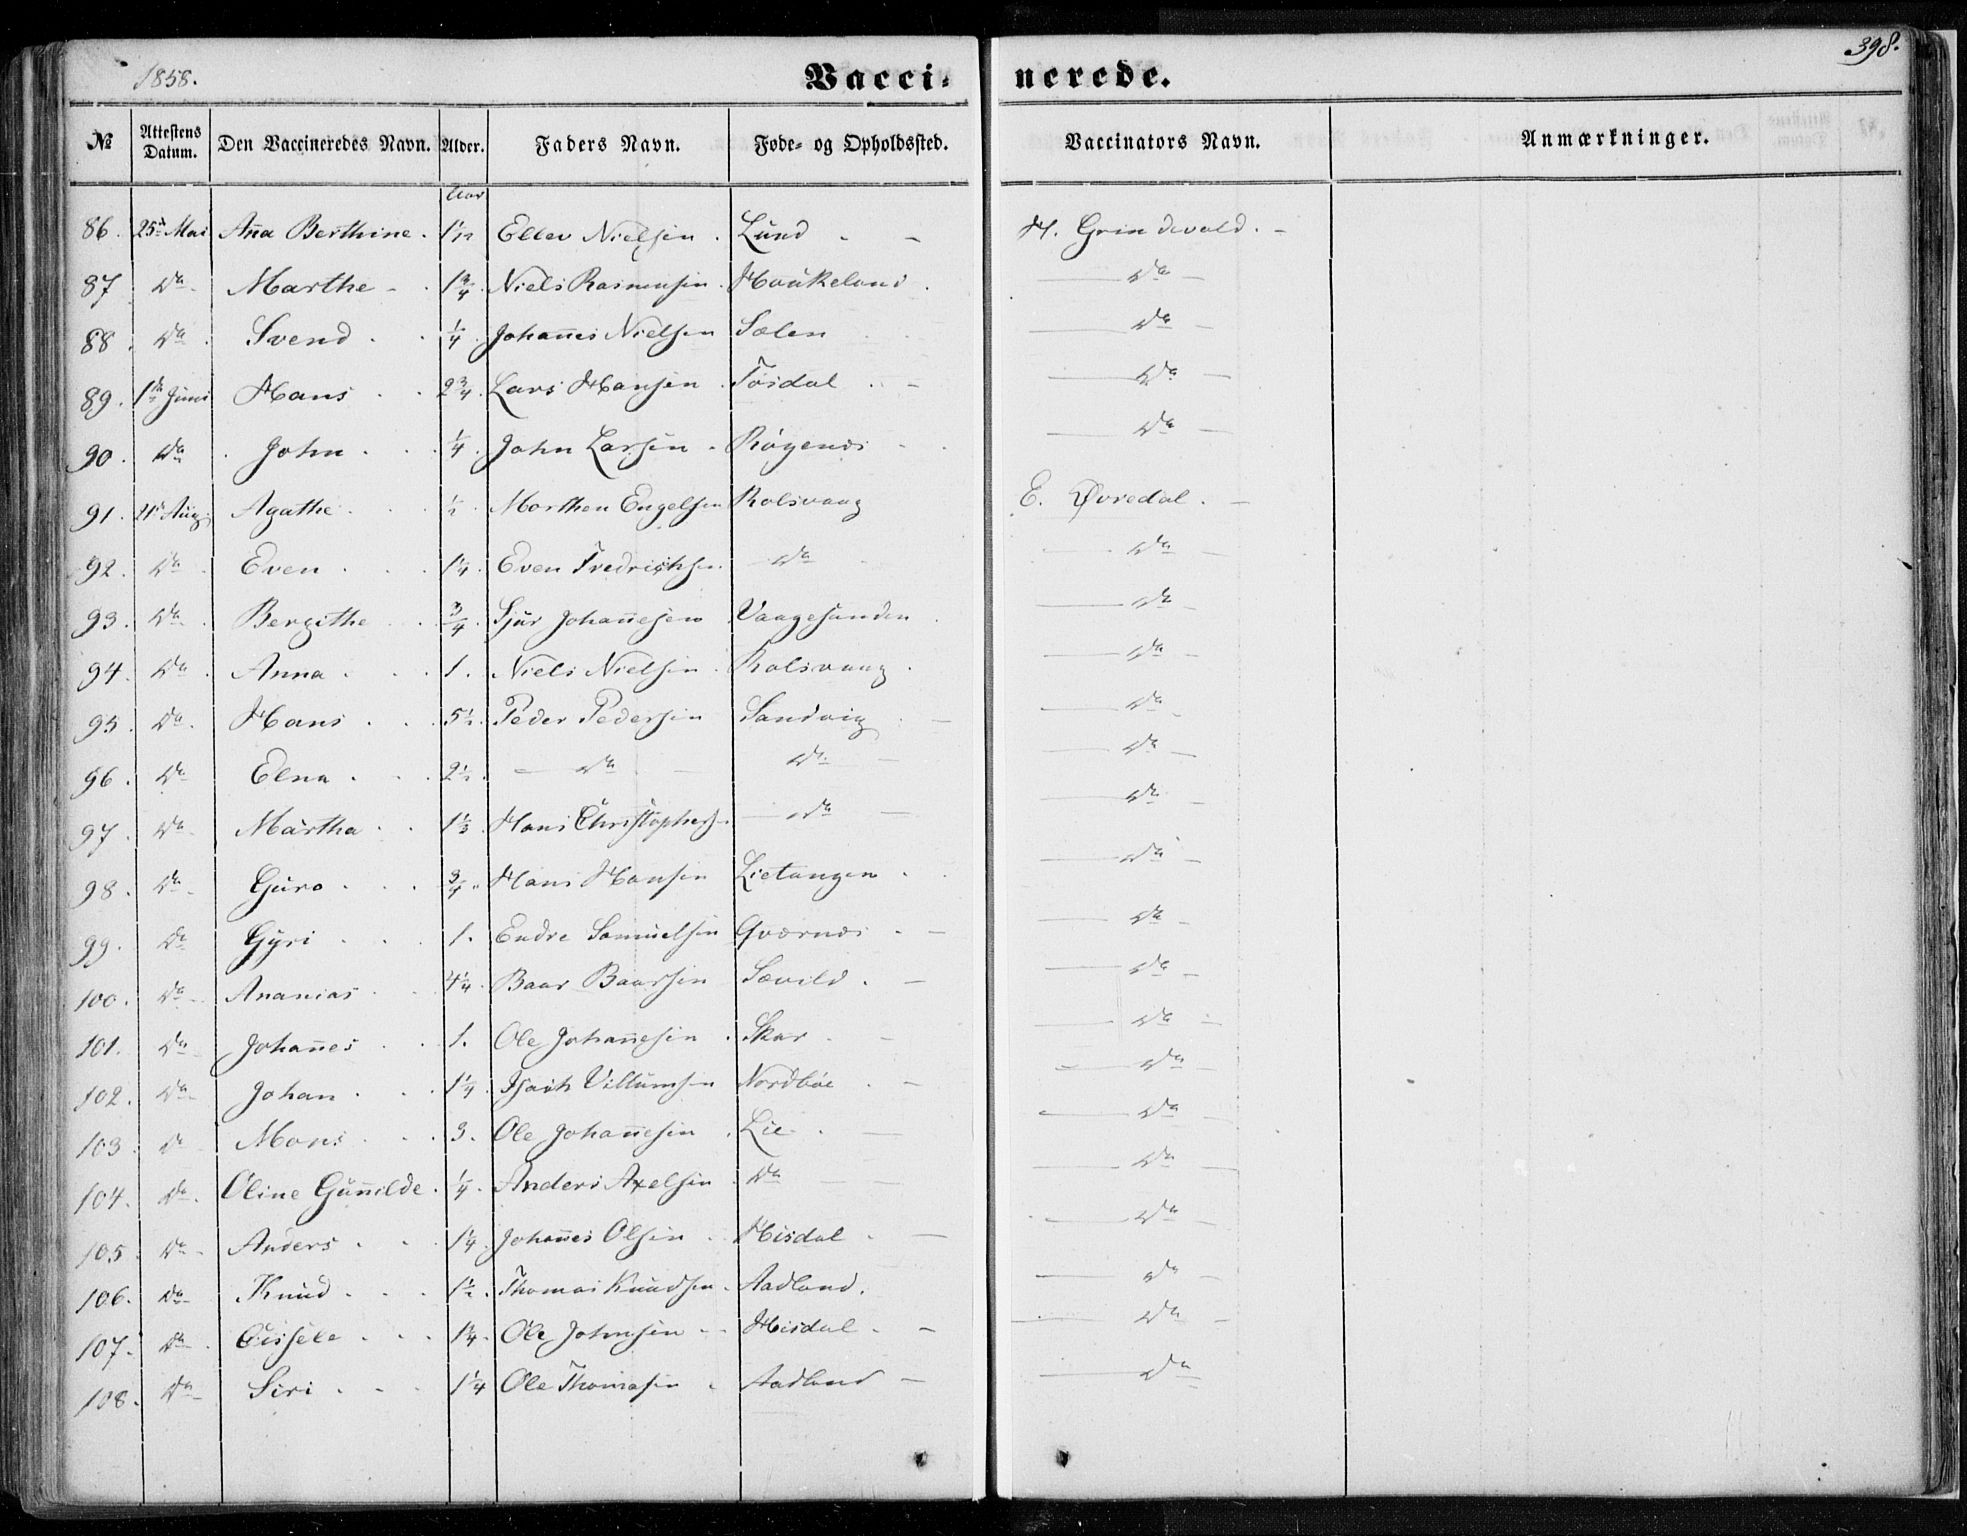 398.
1858. Vacci- nerede.
№ Attestens Datum. Den Vaccineredes Navn. Alder. Faders Navn. Føde- og Opholdssted. Vaccinators Navn. Anmærkninger.
Aar
86. 25de Mai Aña Berthine. 1 1/12 Ellev Nielsen. Lund - - H. Grindevold. -
87 Do - Marthe - 1 3/4 Niels Rasmusen. Houkeland. Do -
88. Do. Svend 1/4 Johañes Nielsen Sælen Do -
89. 1ste Juni Hans 2 3/4 Lars Hansen. Tøsdal - Do -
90. Do John 1/4 John Larsen - Røgenæs - Do -
91. 21de Aug. Agathe 1/2 Morthen Engelsen Rolsvaag E. Øvredal. -
92. Do Even 1 1/4 Even Fredrichsen Do Do -
93. Do Bergithe 3/4 Sjur Johañesen Vaagesunden Do -
94. Do Anna 1. Niels Nielsen Rolsvaag Do -
95. Do Hans 5 1/2 Peder Pedersen Sandvig - Do -
96. Do Elna 2 1/2 Do - Do - Do -
97. Do Martha 1 1/3 Hans Christophers. Do - Do -
98. Do Guro 3/4 Hans Hansen Lietangen Do -
99. Do Gyri 1. Endre Samuelsen Qværnæs - Do -
100. Do Ananias 4 1/4 Baar Baarsen Sævild. - Do -
101. Do Johañes 1. Ole Johañesen Skar - Do -
102. Do Johan 1 1/4 Isach Villumsen Nordbøe - Do -
103 Do Mons 3. Ole Johañesen Lie - Do -
104. Do Oline Guñilde. 1/4 Anders Axelsen Do - Do -
105. Do Anders 1 1/4 Johañes Olsen - Hisdal - Do -
106. Do Knud 1 1/2 Thomas Knudsen - Aadland. Do -
107. Do Gisséle 1 3/4 Ole Johnsen - Hisdal - Do -
108. Do Siri 1 1/4 Ole Thomasen Aadland - Do